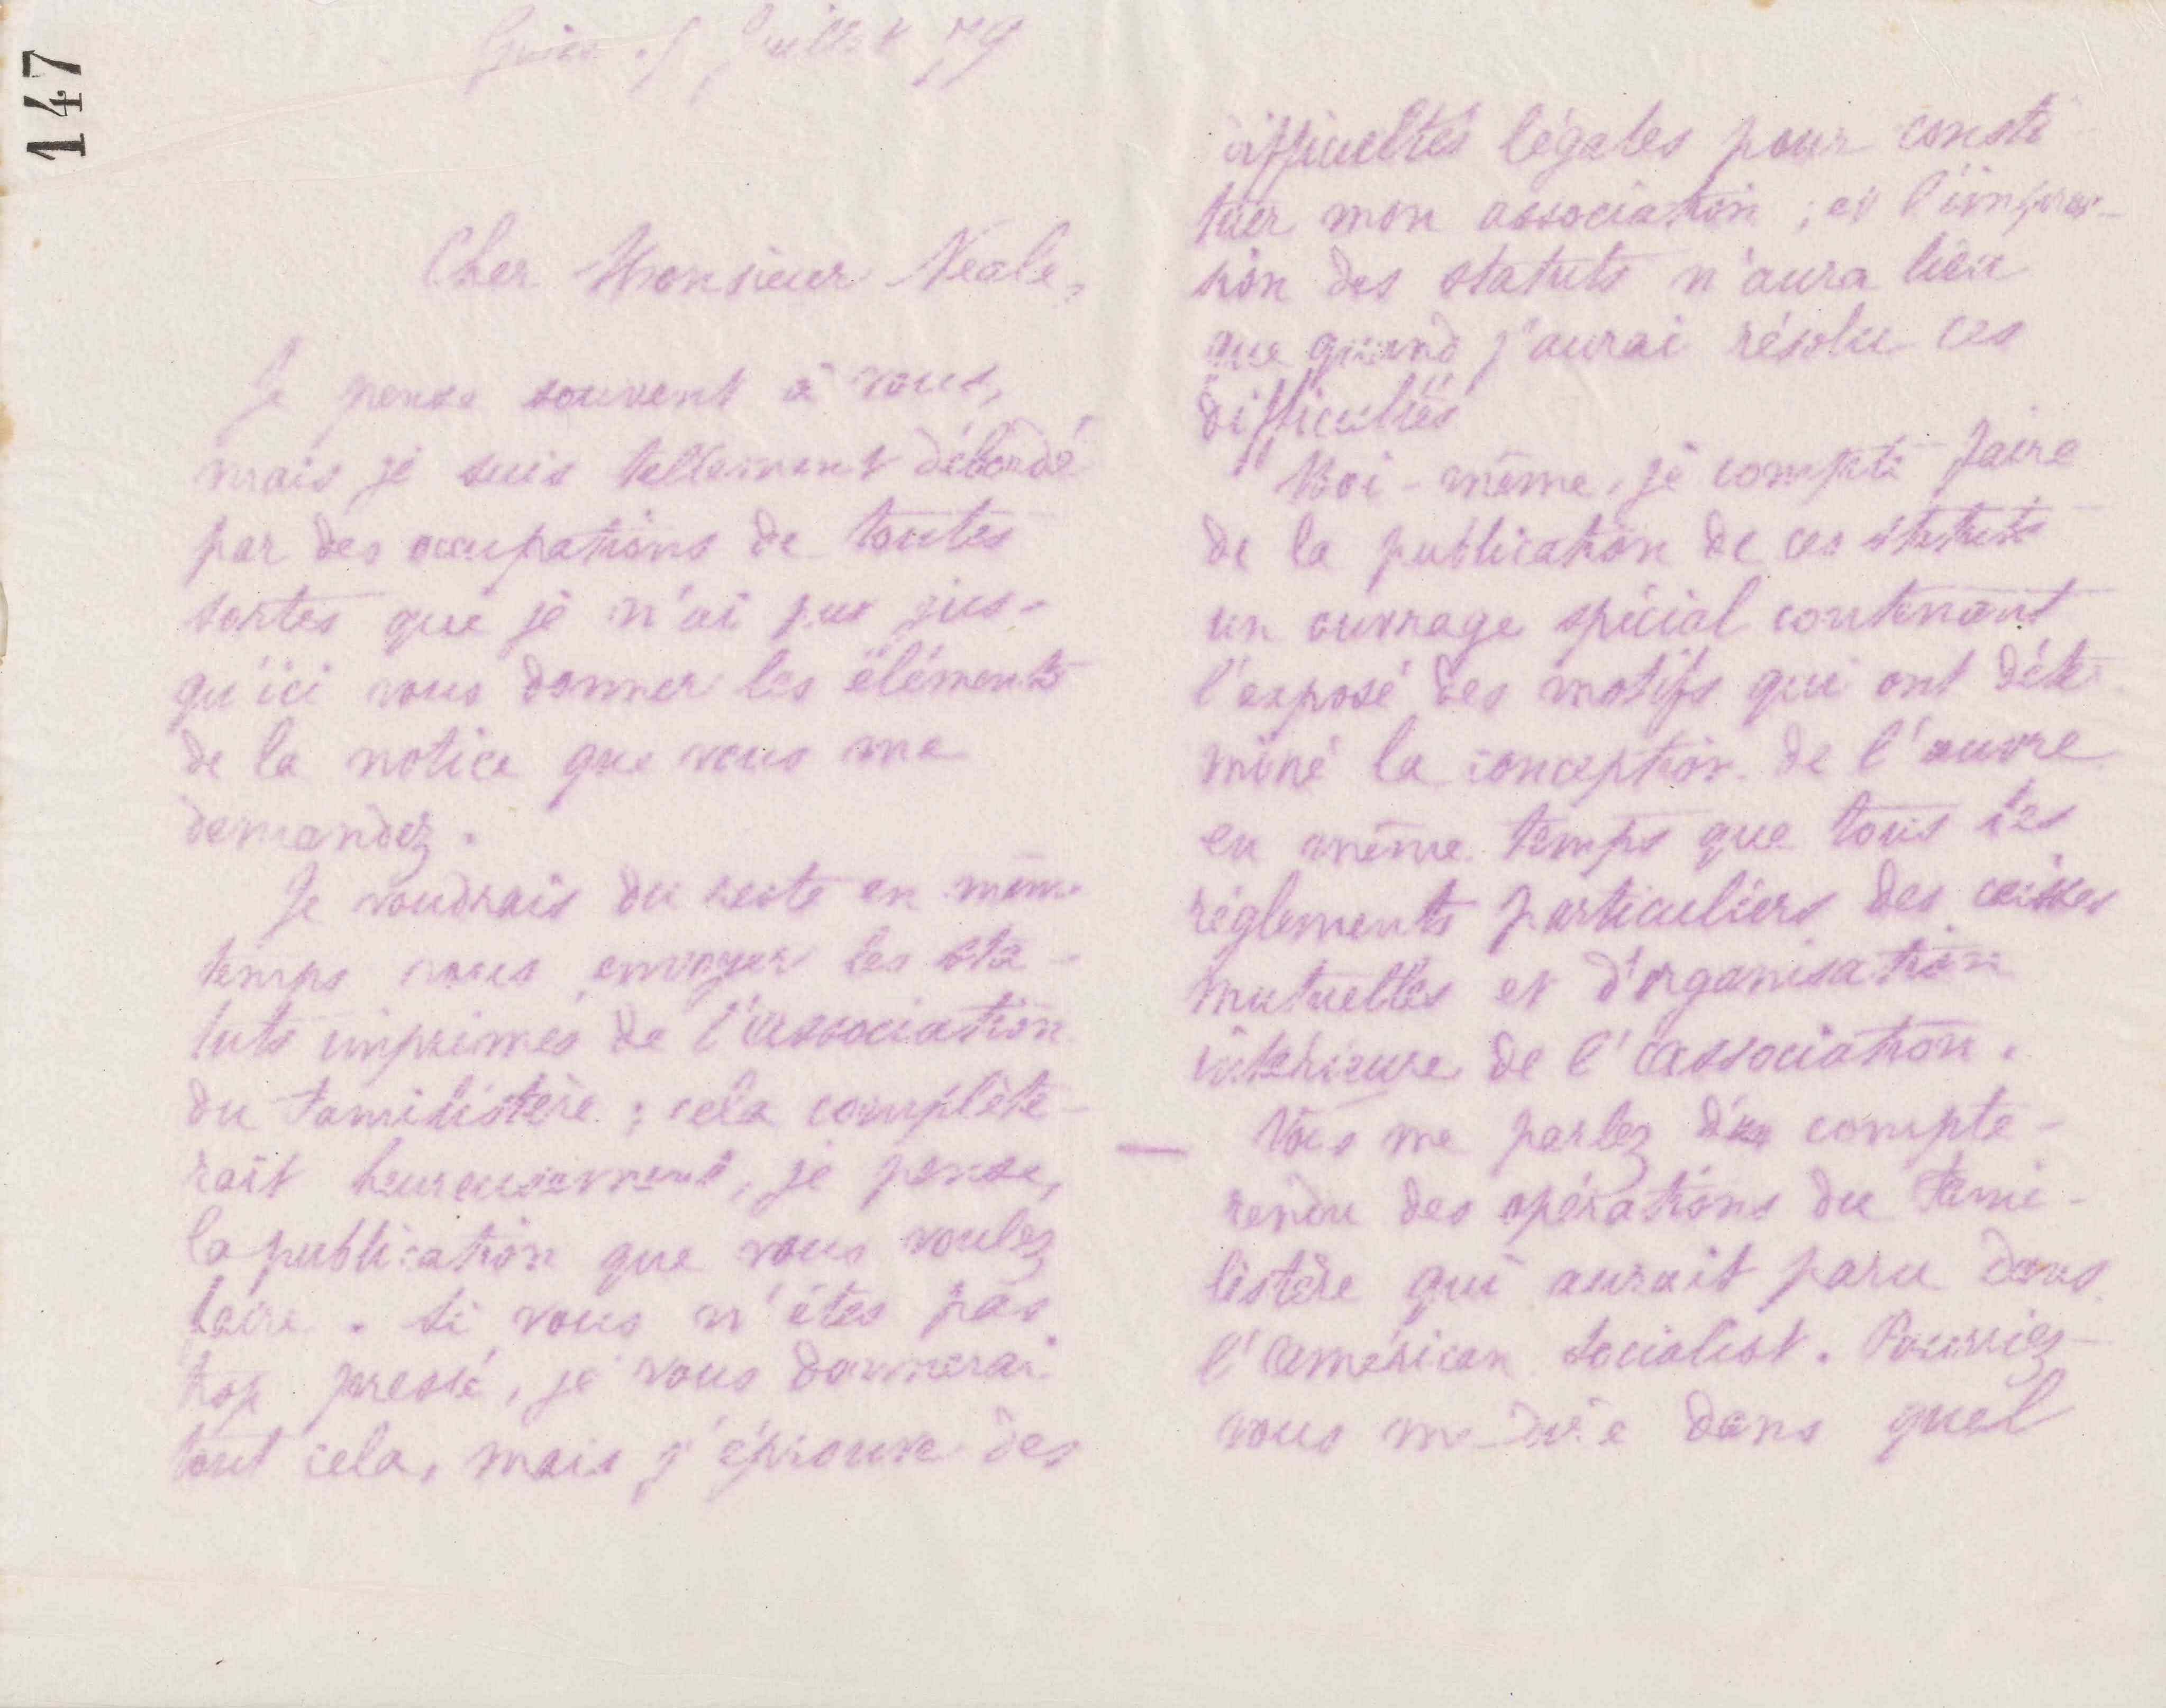 147
Guise . 5 Juillet 79
Cher Monsieur Neale,
Je pense souvent à vous,
mais je suis tellement débordé
par des occupations de toutes
sortes que je n'ai pu jus-
qu'ici vous donner les éléments
de la notice que vous me
demandez.
Je voudrais du reste en même
temps vous envoyer les sta-
tuts imprimés de l'association
du Familistère ; cela complète-
rait heureusement, je pense,
la publication que vous voulez
faire. Si vous n'êtes pas
trop pressé, je vous donnerai
tout cela, mais j'éprouve des
difficultés légales pour consti
tuer mon association ; et l'impres-
sion des statuts n'aura lieu
que quand j'aurai résolu ces
difficultés
Moi-même, je compte faire
de la publication de ces statuts
un ouvrage spécial contenant
l'exposé des motifs qui ont déter
miné la conception de l'œuvre
en même temps que tous les
règlements particuliers des caisses
mutuelles et d'organisation
intérieure de l'association.
Vous me parlez d'un compte-
rendu des opérations du Fami-
listère qui aurait paru dans
l'américan socialist. Pourriez-
vous me dire dans quel